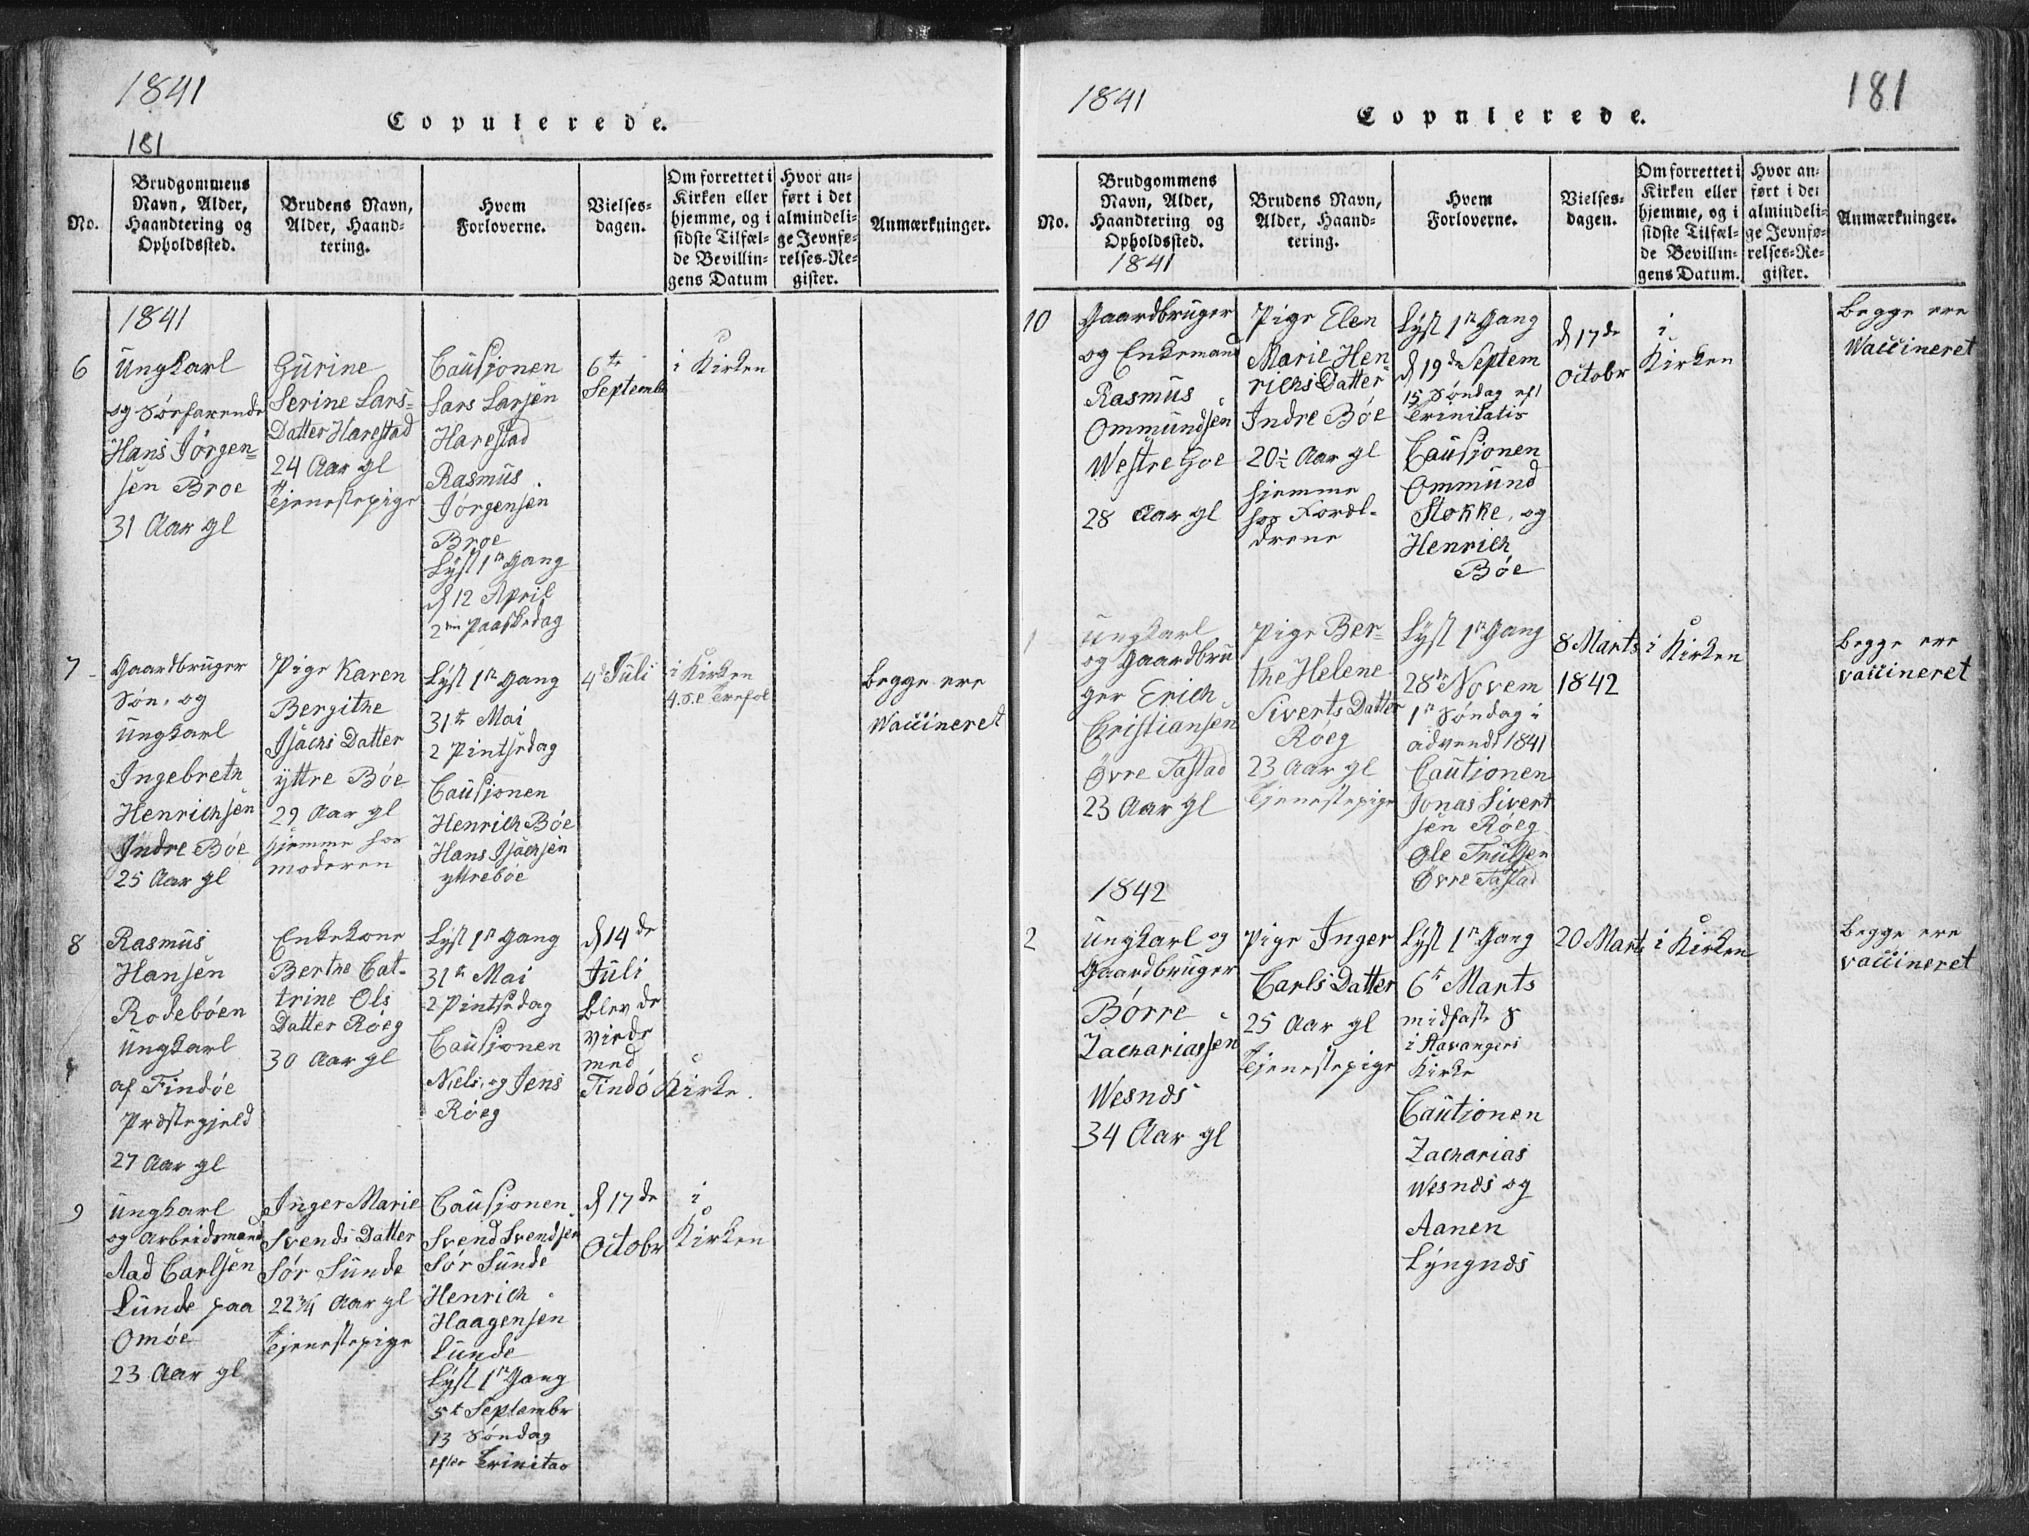 1841
181
Copulerede.
No.
Brudgommens
Navn, Alder,
Haandtering og
Opholdssted.
Brudens Navn,
Alder, Haand-
tering.
Hvem
Forloverne.
Vielses-
dagen.
Om forrettet i
Kirken eller
hjemme, og i
sidste Tilfæl-
de Bevillin-
gens Datum
Hvor an-
ført i det
almindeli-
ge Jevnfø-
relses-Re-
gister.
Anmærkninger.
1841
6
Ungkarl
og Søefarende
Hans Jørgen=
sen Broe
31 Aar gl
Gurine
Serine Lars=
Datter Harestad
24 Aar gl
Tjenestepige
Causionen
Lars Larsen
Harestad
Rasmus
Jørgensen
Broe
Lyst 1n Gang
d 12 April
2den Paaskedag
6te
Septembr
i Kirken
7
Gaardbruger
Søn, og
Ungkarl
Ingebreth
Henrichsen
Indre Bøe
25 Aar gl
Pige Karen
Bergithe
Isachs Datter
yttre Bøe
29 Aar gl
hjemme hos
moderen
Lyst 1n Gang
31te Mai
2 Pintsedag
Causionen
Henrich Bøe
Hans Isachsen
yttrebøe
4de Juli
i Kirken
Begge ere
Waccineret
8
Rasmus
Hansen
Rodebøen
Ungkarl
af Findøe
Præstegjeld
27 Aar gl
Enkekone
Berthe Cat-
trine Ols
Datter Røeg
30 Aar gl
Lyst 1n Gang
31te Mai
2 Pintsedag
Causionen
Niels, og Jens
Røeg
d 14de
Juli
blev de
viede
med
Findö Kirke.
9
Ungkarl
og Arbeidsmand
Aad Carlsen
Lunde paa
Omøe
23 Aar gl
Inger Marie
Svends Datter
Sør Sunde
22 3/4 Aar gl
Tjenestepige
Causionen
Svend Svendsen
Sør Sunde
Henrich
Haagensen
Lunde
Lyst 1n Gang
5t Septembr
13 Søndag
efter Trinitas
d 17de
Octobr
i
Kirken
1841
181
Copulerede.
No.
Brudgommens
Navn, Alder,
Haandtering og
Opholdssted.
1841
Brudens Navn,
Alder, Haand-
tering.
Hvem
Forloverne.
Vielses-
dagen.
Om forrettet i
Kirken eller
hjemme, og i
sidste Tilfæl-
de Bevillin-
gens Datum.
Hvor an-
ført i det
almindeli-
ge Jevnfø-
relses-Re-
gister.
Anmærkninger.
10
Gaardbruger
og Enkemand
Rasmus
Ommundsen
Westre Goe
28 Aar gl
Pige Elen
Marie Hen
richs Datter
Indre Bøe
20 1/2 Aar gl
hjemme
hos Foræl-
drene
Lyst 1n Gang
d 19de Septem
15 Søndag eft
Trinitatis
Causionen
Ommund
Stokke, og
Henrich
Bøe
d 17de
Octobr
i
Kirken
Begge ere
Waccineret
1
Ungkarl
og Gaardbru
ger Erich
Christiansen
Øvre Tastad
23 Aar gl
Pige Ber=
the Helene
Siverts Datter
Røeg
23 Aar gl
Tjenestepige
Lyst 1n Gang
28de Novem
1n Søndag i
advendt 1841
Cautionen
Jonas Sivert
sen Røeg
Ole Trulsen
Øvre Tastad
8 Marts
1842
i Kirken
Begge ere
vaccineret
1842
2
Ungkarl og
Gaardbruger
Børre
Zachariassen
Wesnæs
34 Aar gl
Pige Inger
Carls Datter
25 Aar gl
Tjenestepige
Lyst 1n Gang
6te Marts
midfaste S
i Stavangers
Kirke
Cautionen
Zacharias
Wesnæs og
Aanen
Lyngnæs
20 Marts
i Kirken
Begge ere
vaccineret